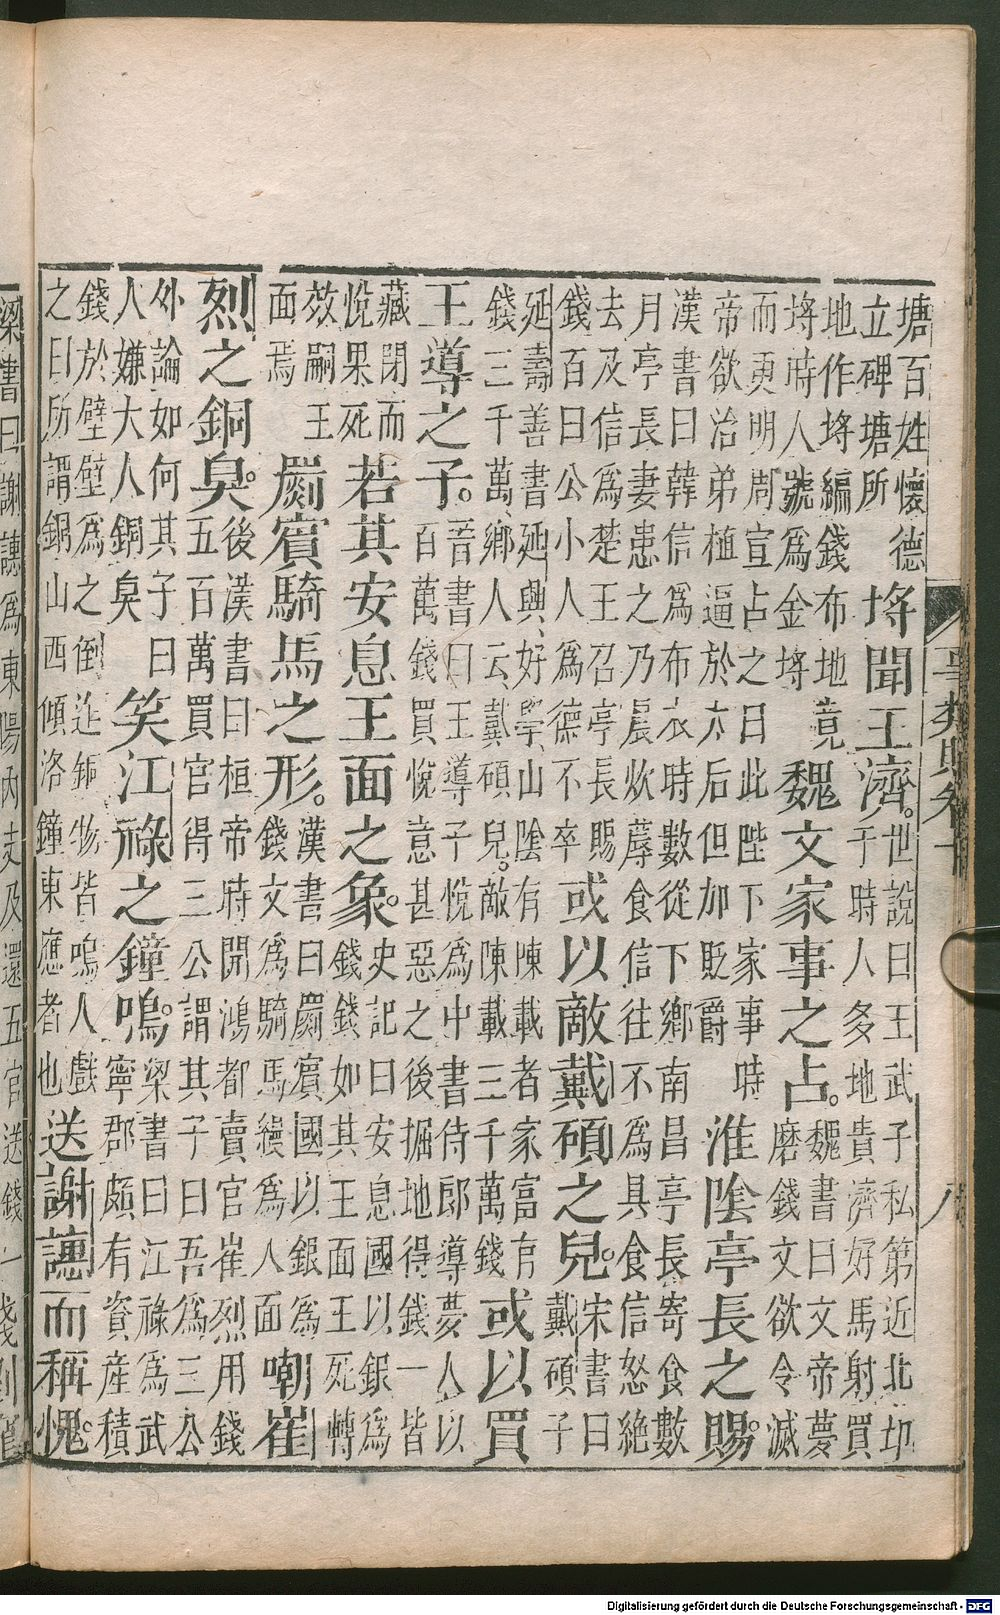 事類賦卷十
八
塘百姓懷德
立碑塘所
埒聞王濟。
世說曰王武子私第近北邙
于時人多地貴濟好馬射買
地作埒編錢布地竟
埒時人號為金埒
魏文家事之占。
魏書曰文帝夢
磨錢文欲令滅
而更明周宣占之曰此陛下家事時
帝欲治弟植逼於太后但加貶爵
淮陰亭長之賜。
漢書曰韓信為布衣時數從下鄉南昌亭長寄食數
月亭長妻患之乃晨炊蓐食信往不為具食信怒絶
去及信為楚王召亭長賜
錢百曰公小人為德不卒
或以敵戴碩之兒。
宋書曰
戴碩子
延壽善書延興好學山陰有陳載者家富有
錢三千萬鄉人云戴碩兒。敵陳載三千萬錢
或以買
王導之子。
晉書曰王導子悅為中書侍郎導夢人以
百萬錢買悅意甚惡之後掘地得錢一皆
藏閉而
悅果死
若其安息王面之象。
史記曰安息國以銀為
錢錢如其王面王死轉
效嗣王
面焉
罽賓騎馬之形。
漢書曰罽賓國以銀為
錢文為騎馬縵為人面
嘲崔
烈之銅臭。
後漢書曰桓帝時開鴻都賣官崔烈用錢
五百萬買官得三公謂其子曰吾為三公
外論如何其子曰
人嫌大人銅臭
笑江祿之鐘鳴。
梁書曰江祿為武
寧郡頗有資產積
錢於壁壁為之倒迮銅物皆鳴人戲
之曰所謂銅山西傾洛鐘東應者也
送謝譓而稱愧。
梁書曰謝譓為東陽內史及還五官送錢一
Digitalisierung gefördert durch die Deutsche Forschungsgemeinschaft - DFG